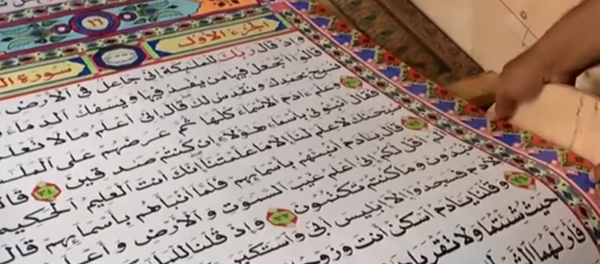 الجزء الأول
سورة
إذ قال ربك للملئكة إنى جاعل فى الأرض
قالوا أتجعل فيها من يفسد فيها ويسفك الدماء
نسبح بحمدك ونقدس لك قال إنى أعلم ما لا تعلمو
وعلم ءادم الأسماء كلها ثم عرضهم على المل
فقال أنبئونى بأسماء هؤلاء إن كنتم صدقين قالو
سبحنك لا علم لنا إلا ما علمتنا إنك أنت العليم الحكيم
قال يادم أنبئهم بأسمائهم فلما أنبأهم بأسمائهم قال
ألم أقل لكم إنى أعلم غيب السموت والأرض وأعلم
تبدون وما كنتم تكتمون وإذ قلنا للملئكة
لادم فسجدوا إلا إبليس أبى واستكبر
وقلنا يادم اسكن أنت وزوجك
حيث شئتما ولا تقربا
فأزلهما